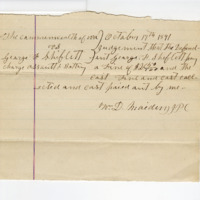 The commonwealth of Va October 17th 1891
vs Judgement that the Defend
George W Shiflett ant George W Shiflett pay
charge assault & Battery a fine of and the
cost fine and cost coll
ected and cost paid out by me
Wm D. Maiden JP